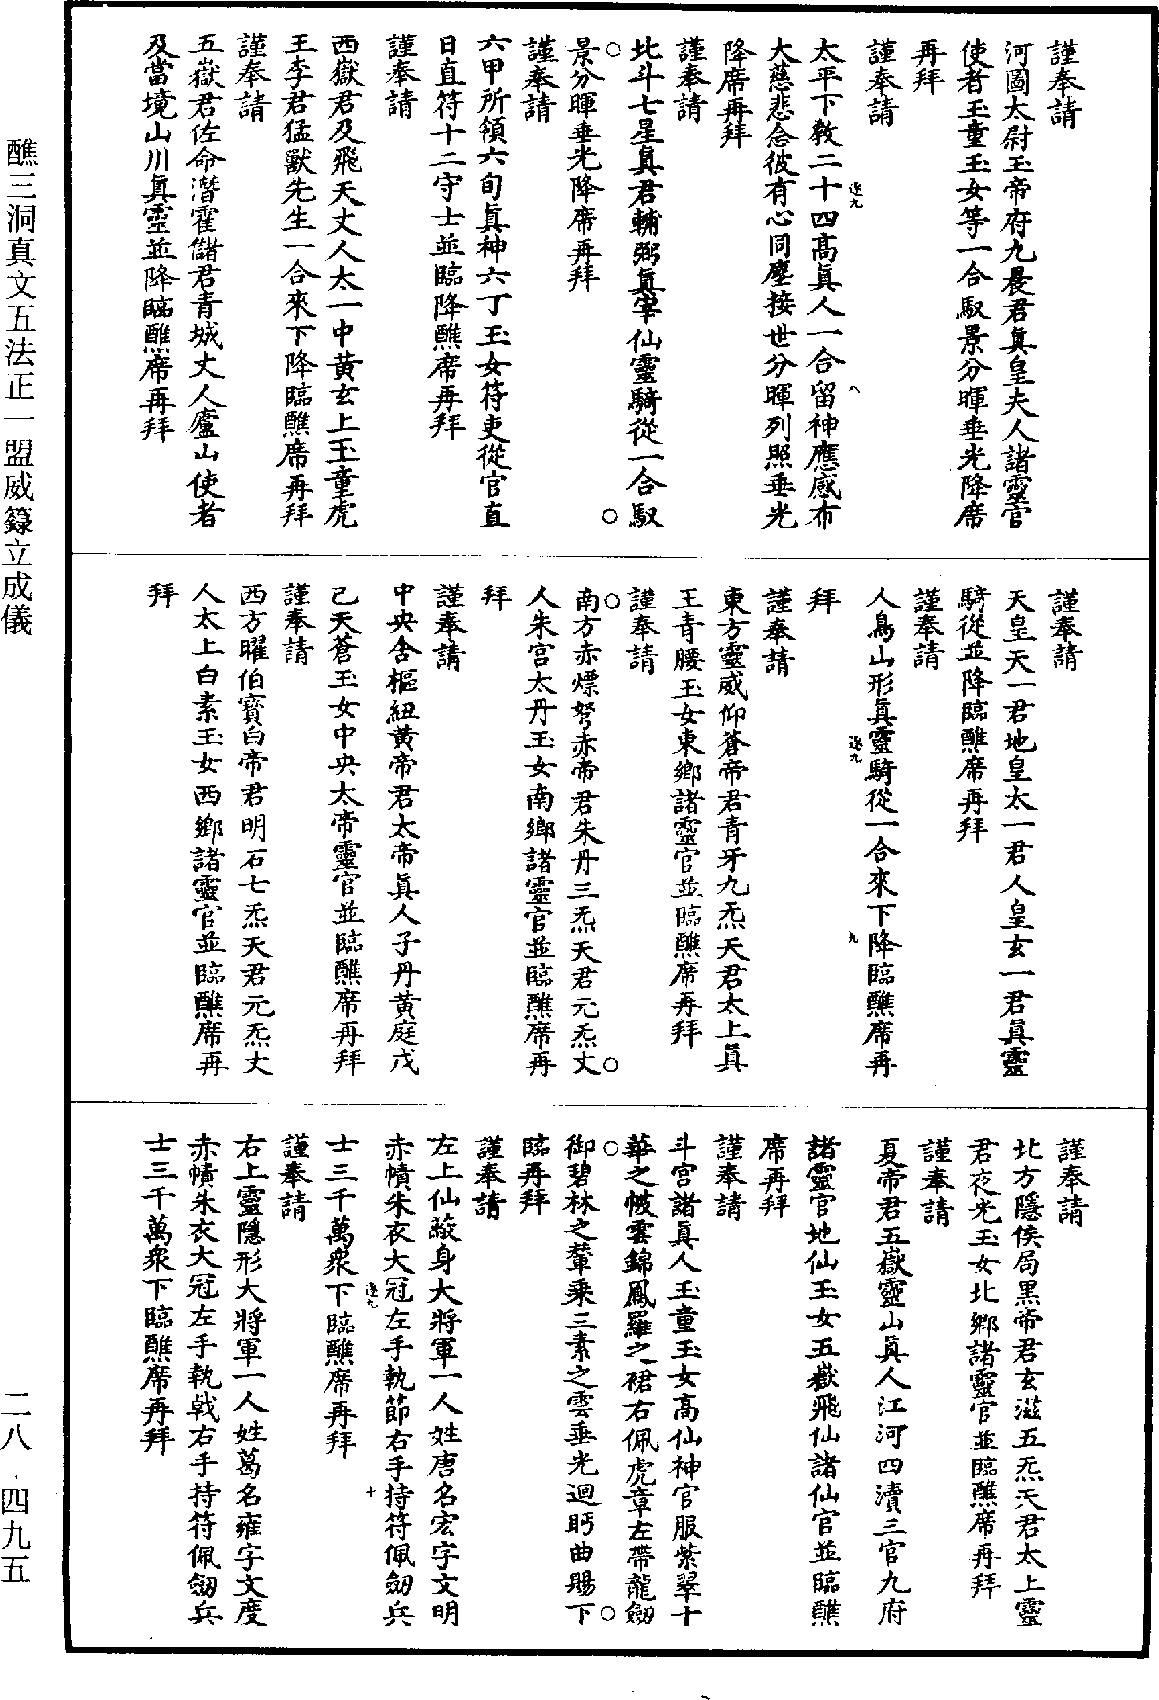 謹奉請
河圖太尉玉帝府九晨君真皇夫人諸靈官
使者玉童玉女等一合馭景分暉垂光降席
再拜
謹奉請
太平下教二十四高真人一合留神應感布
大慈悲念彼有心同塵接世分暉列照垂光
降席再拜
謹奉請
北斗七星真君輔弼真宰仙靈騎從一合馭
景分暉垂光降席再拜
謹奉請
六甲所領六旬真神六丁玉女符吏從官直
日直符十二守士並臨降醮席再拜
謹奉請
西嶽君及飛天丈人太一中黃玄上玉童虎
王李君猛獸先生一合來下降臨醮席再拜
謹奉請
五嶽君佐命潛霍儲君青城丈人廬山使者
及當境山川真靈並降臨醮席再拜
謹奉請
天皇天一君地皇太一君人皇玄一君真靈
騎從並降臨醮席再拜
謹奉請
人鳥山形真靈騎從一合來下降臨醮席再
拜
謹奉請
東方靈威仰蒼帝君青牙九炁天君太上真
王青腰玉女東鄉諸靈官並臨醮席再拜
謹奉請
南方赤熛弩赤帝君朱丹三炁天君元炁丈
人朱宮太丹玉女南鄉諸靈官並臨醮席再
拜
謹奉請
中央含樞紐黃帝君太帝真人子丹黃庭戊
己天蒼玉女中央太帝靈官並臨醮席再拜
謹奉請
西方曜伯寶白帝君明石七炁天君元炁丈
人太上白素玉女西鄉諸靈官並臨醮席再
拜
謹奉請
北方隱侯局黑帝君玄滋五炁天君太上靈
君夜光玉女北鄉諸靈官並臨醮席再拜
謹奉請
夏帝君五嶽靈山真人江河四瀆三官九府
諸靈官地仙玉女五嶽飛仙諸仙官並臨醮
席再拜
謹奉請
斗宮諸真人玉童玉女高仙神官服紫翠十
華之帔雲錦鳳羅之裙右佩虎章左帶龍劒
御碧林之輦乘三素之雲垂光迴眄曲賜下
臨再拜
謹奉請
左上仙蔽身大將軍一人姓唐名宏字文明
赤幘朱衣大冠左手執節右手持符佩劒兵
士三千萬衆下臨醮席再拜
謹奉請
右上靈隱形大將軍一人姓葛名雍字文度
赤幘朱衣大冠左手執戟右手持符佩劒兵
士三千萬衆下臨醮席再拜
醮三洞真文五法正一盟威籙立成儀
二八·四九五